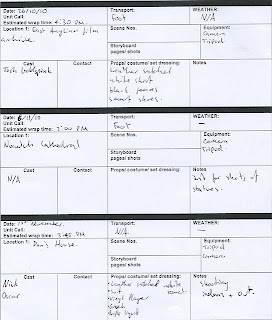 Date: 26/10/10 Transport: WEATHER:
Unit Call: Foot N/A
Estimated wrap time: 4:30 PM
Location 1: East Anglian film archive Scene Nos. Equipment:
Camera
Tripod
Storyboard
pages/ shots
Cast Contact Props/ costume/ set dressing: Notes
Josh
leather
white shirt
black
smart shoes.
Date: Transport: WEATHER:
Unit Call: Foot —
Estimated wrap time: 2:00 PM
Location 1: Scene Nos. Equipment:
Norwich Cathedral Camera
Tripod.
Storyboard
pages/ shots
Cast Contact Props/ costume/ set dressing: Notes
N/A N/A Just for shots of
statues.
Date: 1st November. Transport: WEATHER:
Unit Call: N/A —
Estimated wrap time: 3:45 PM
Location 1: House. Scene Nos. Equipment:
Tripod
Camera
Storyboard
pages/ shots
Cast Contact Props/ costume/ set dressing: Notes
Nick leather white Shooting
Oscar indoors + out.
Vinyl Player
light